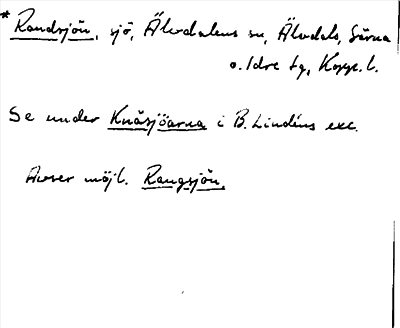 * Randsjön, sjö, Älvdalens sn, Älvdals, Särna
o. Idre tg, Kopp. l.
Se under Knäsjöarna i B. Lindéns exc.
Avser möjl. Rangsjön.